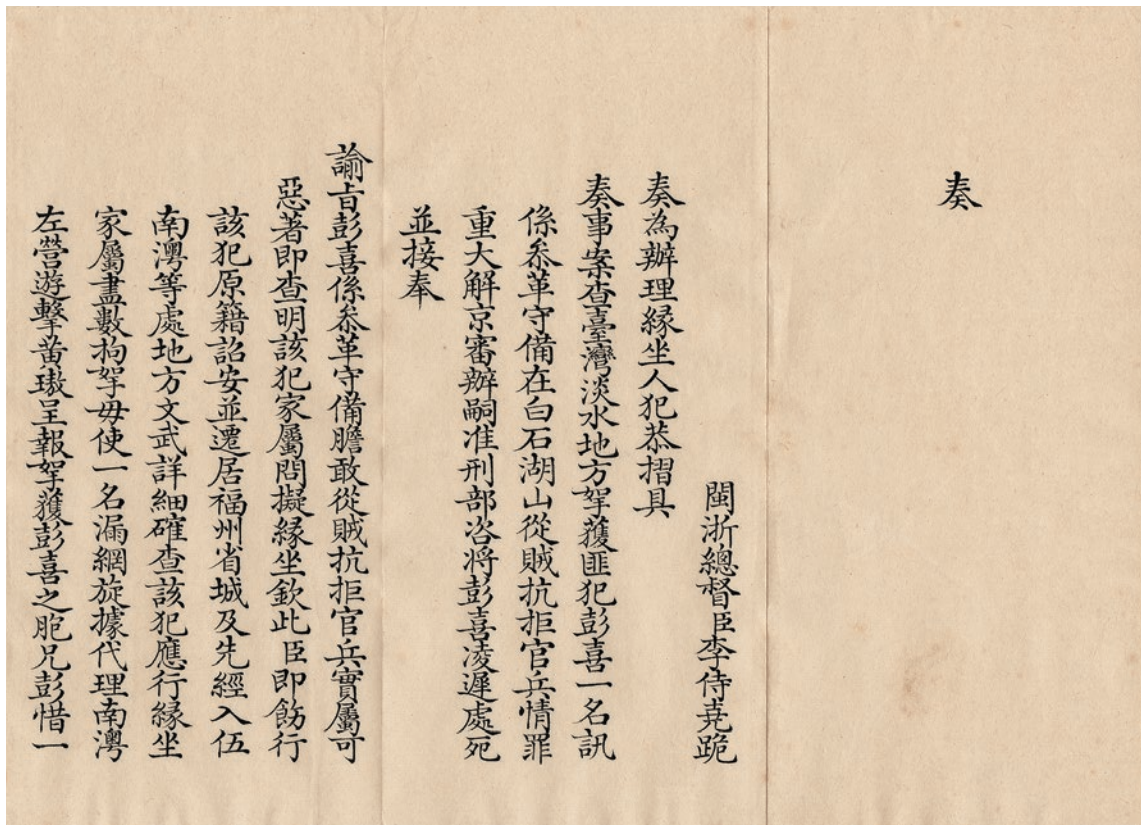 奏
閩浙總督臣李侍堯跪
奏為辦理緣坐人犯恭摺具
奏事案查臺灣淡水地方拏獲匪犯彭喜一名訊
係叅革守備在白石湖山從賊抗拒官兵情罪
重大解京審辦嗣准刑部咨將彭喜凌遲處死
並接奉
諭旨彭喜係叅革守備膽敢從賊抗拒官兵實屬可
惡著即查明該犯家屬問擬緣坐欽此臣即飭行
該犯原籍詔安並遷居福州省城及先經入伍
南澳等處地方文武詳細確查該犯應行緣坐
家屬盡數拘拏毋使一名漏網旋據代理南澳
左營遊擊黃璈呈報拏獲彭喜之胞兄彭惜一